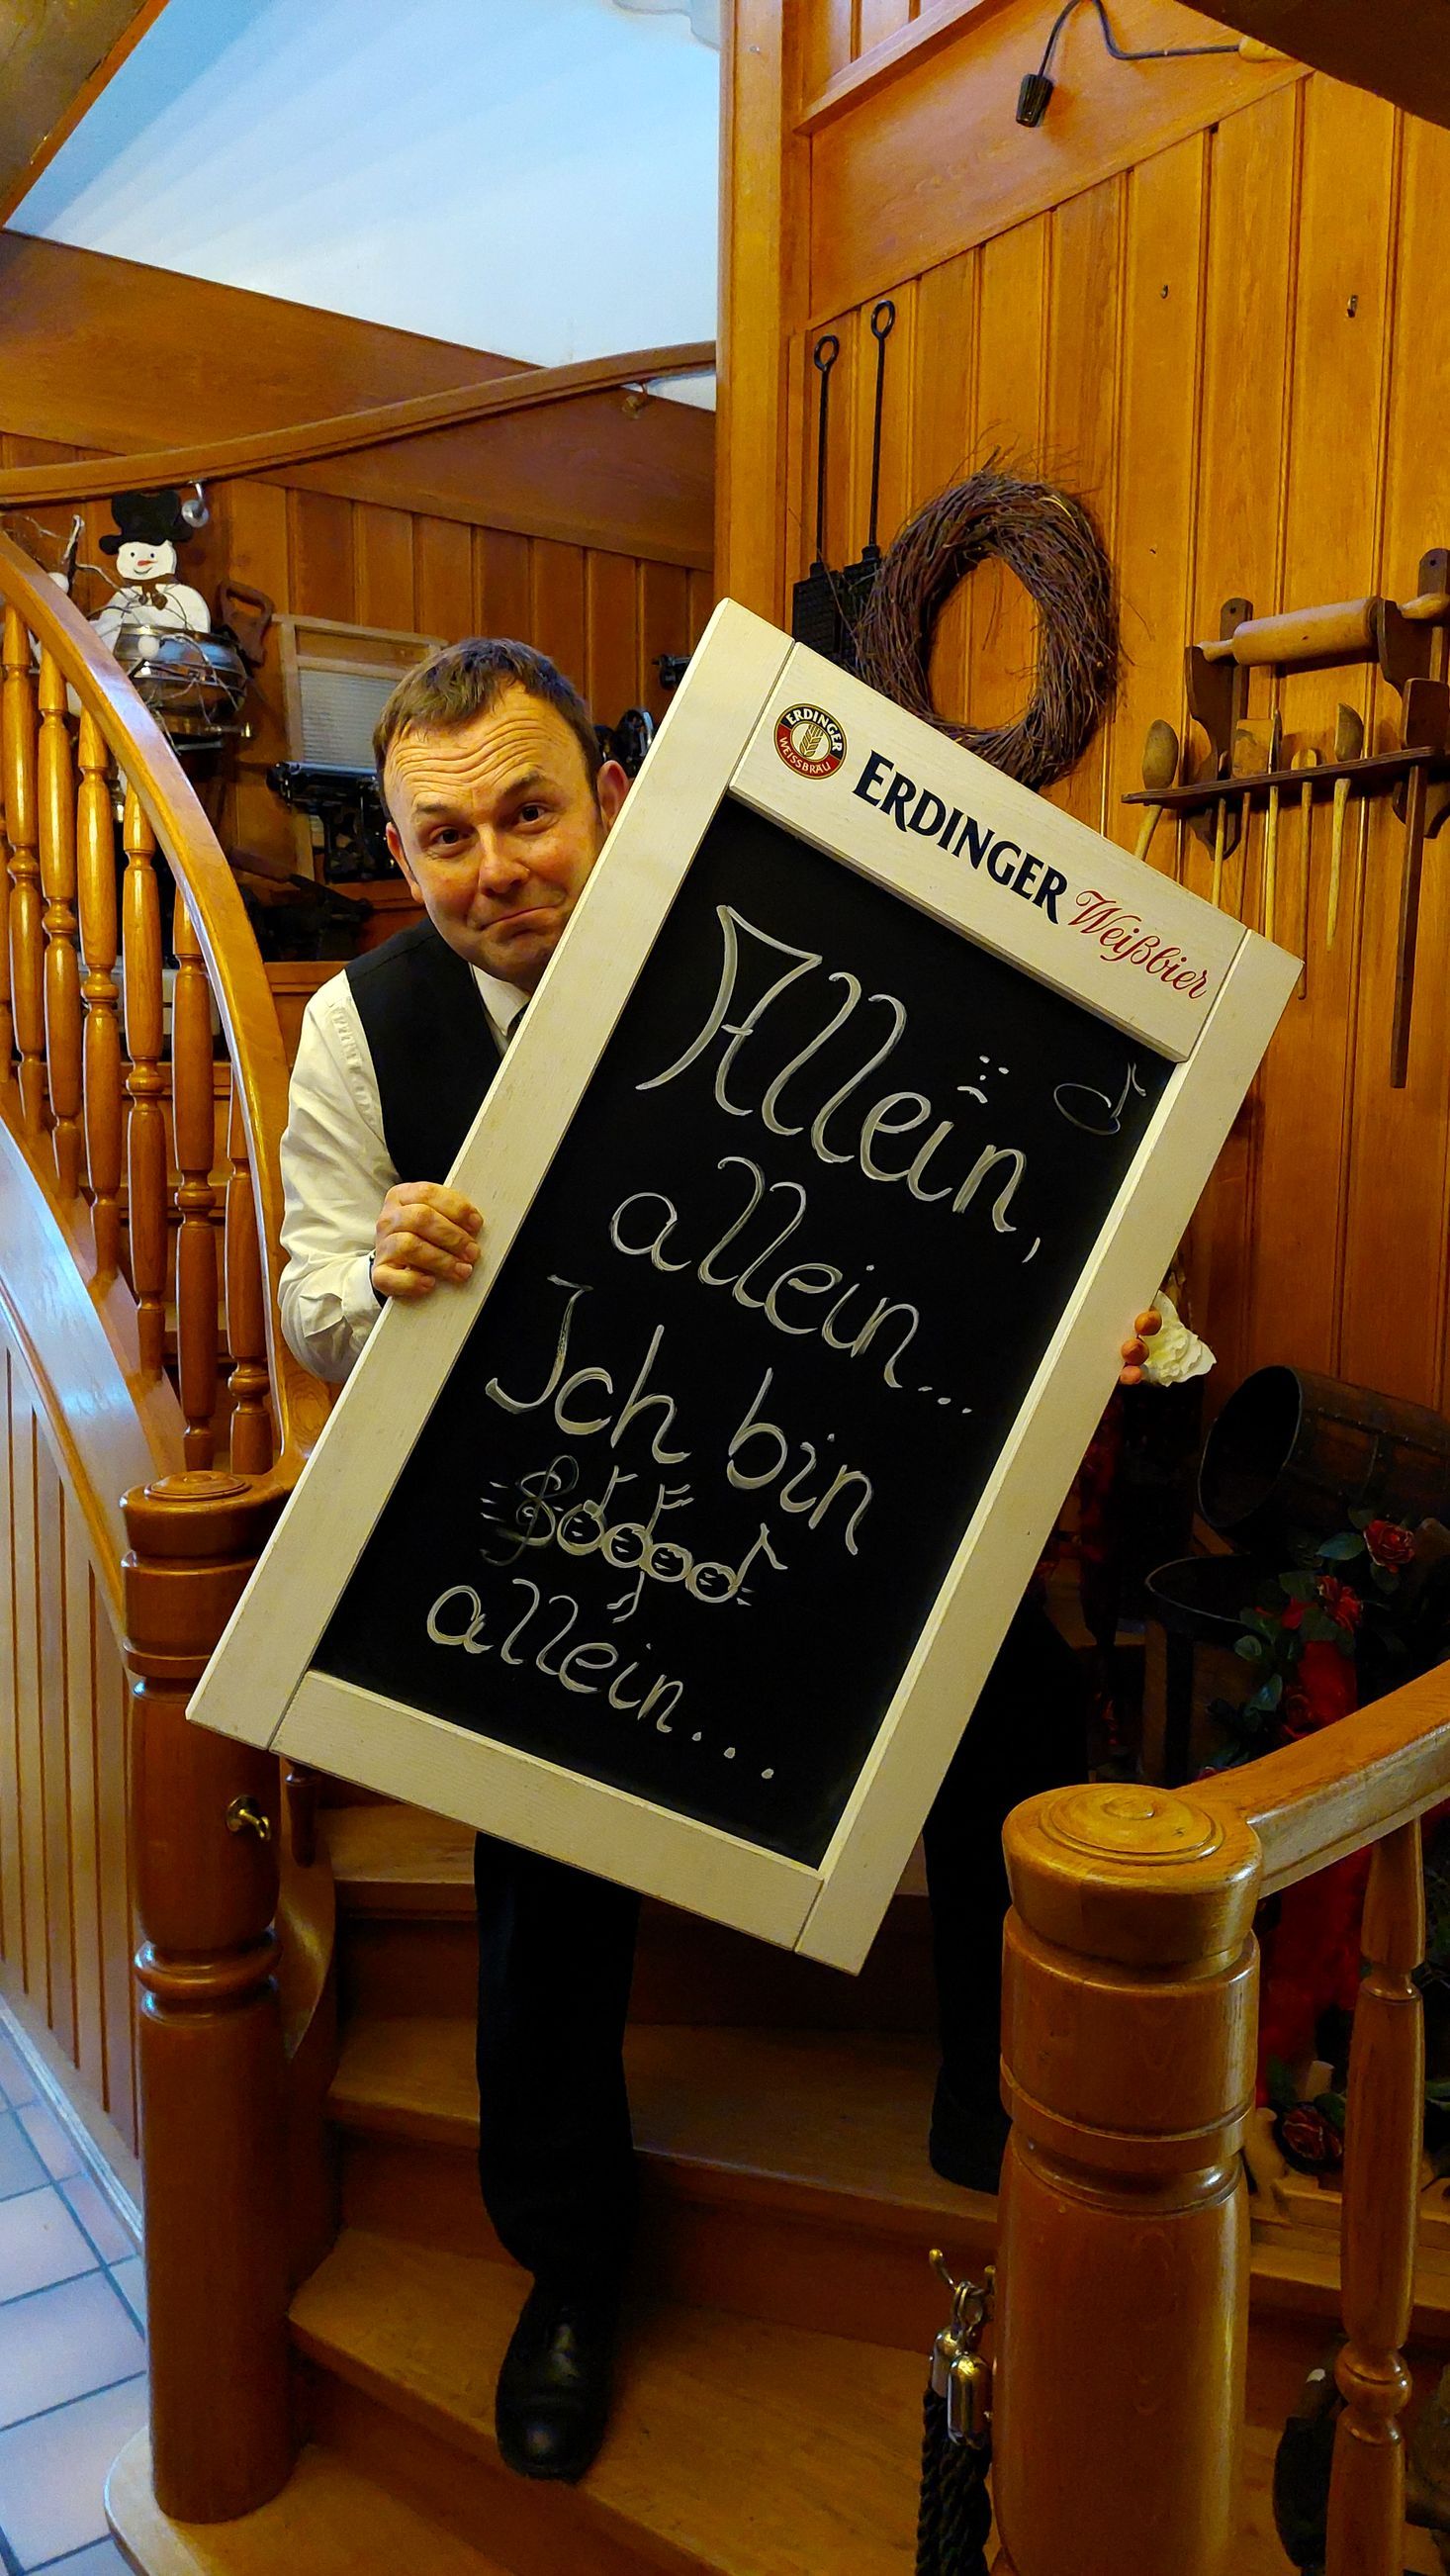 ERDINGER
WEISSBRÄU
ERDINGER Weißbier
Allein,
allein...
Ich bin
allein...